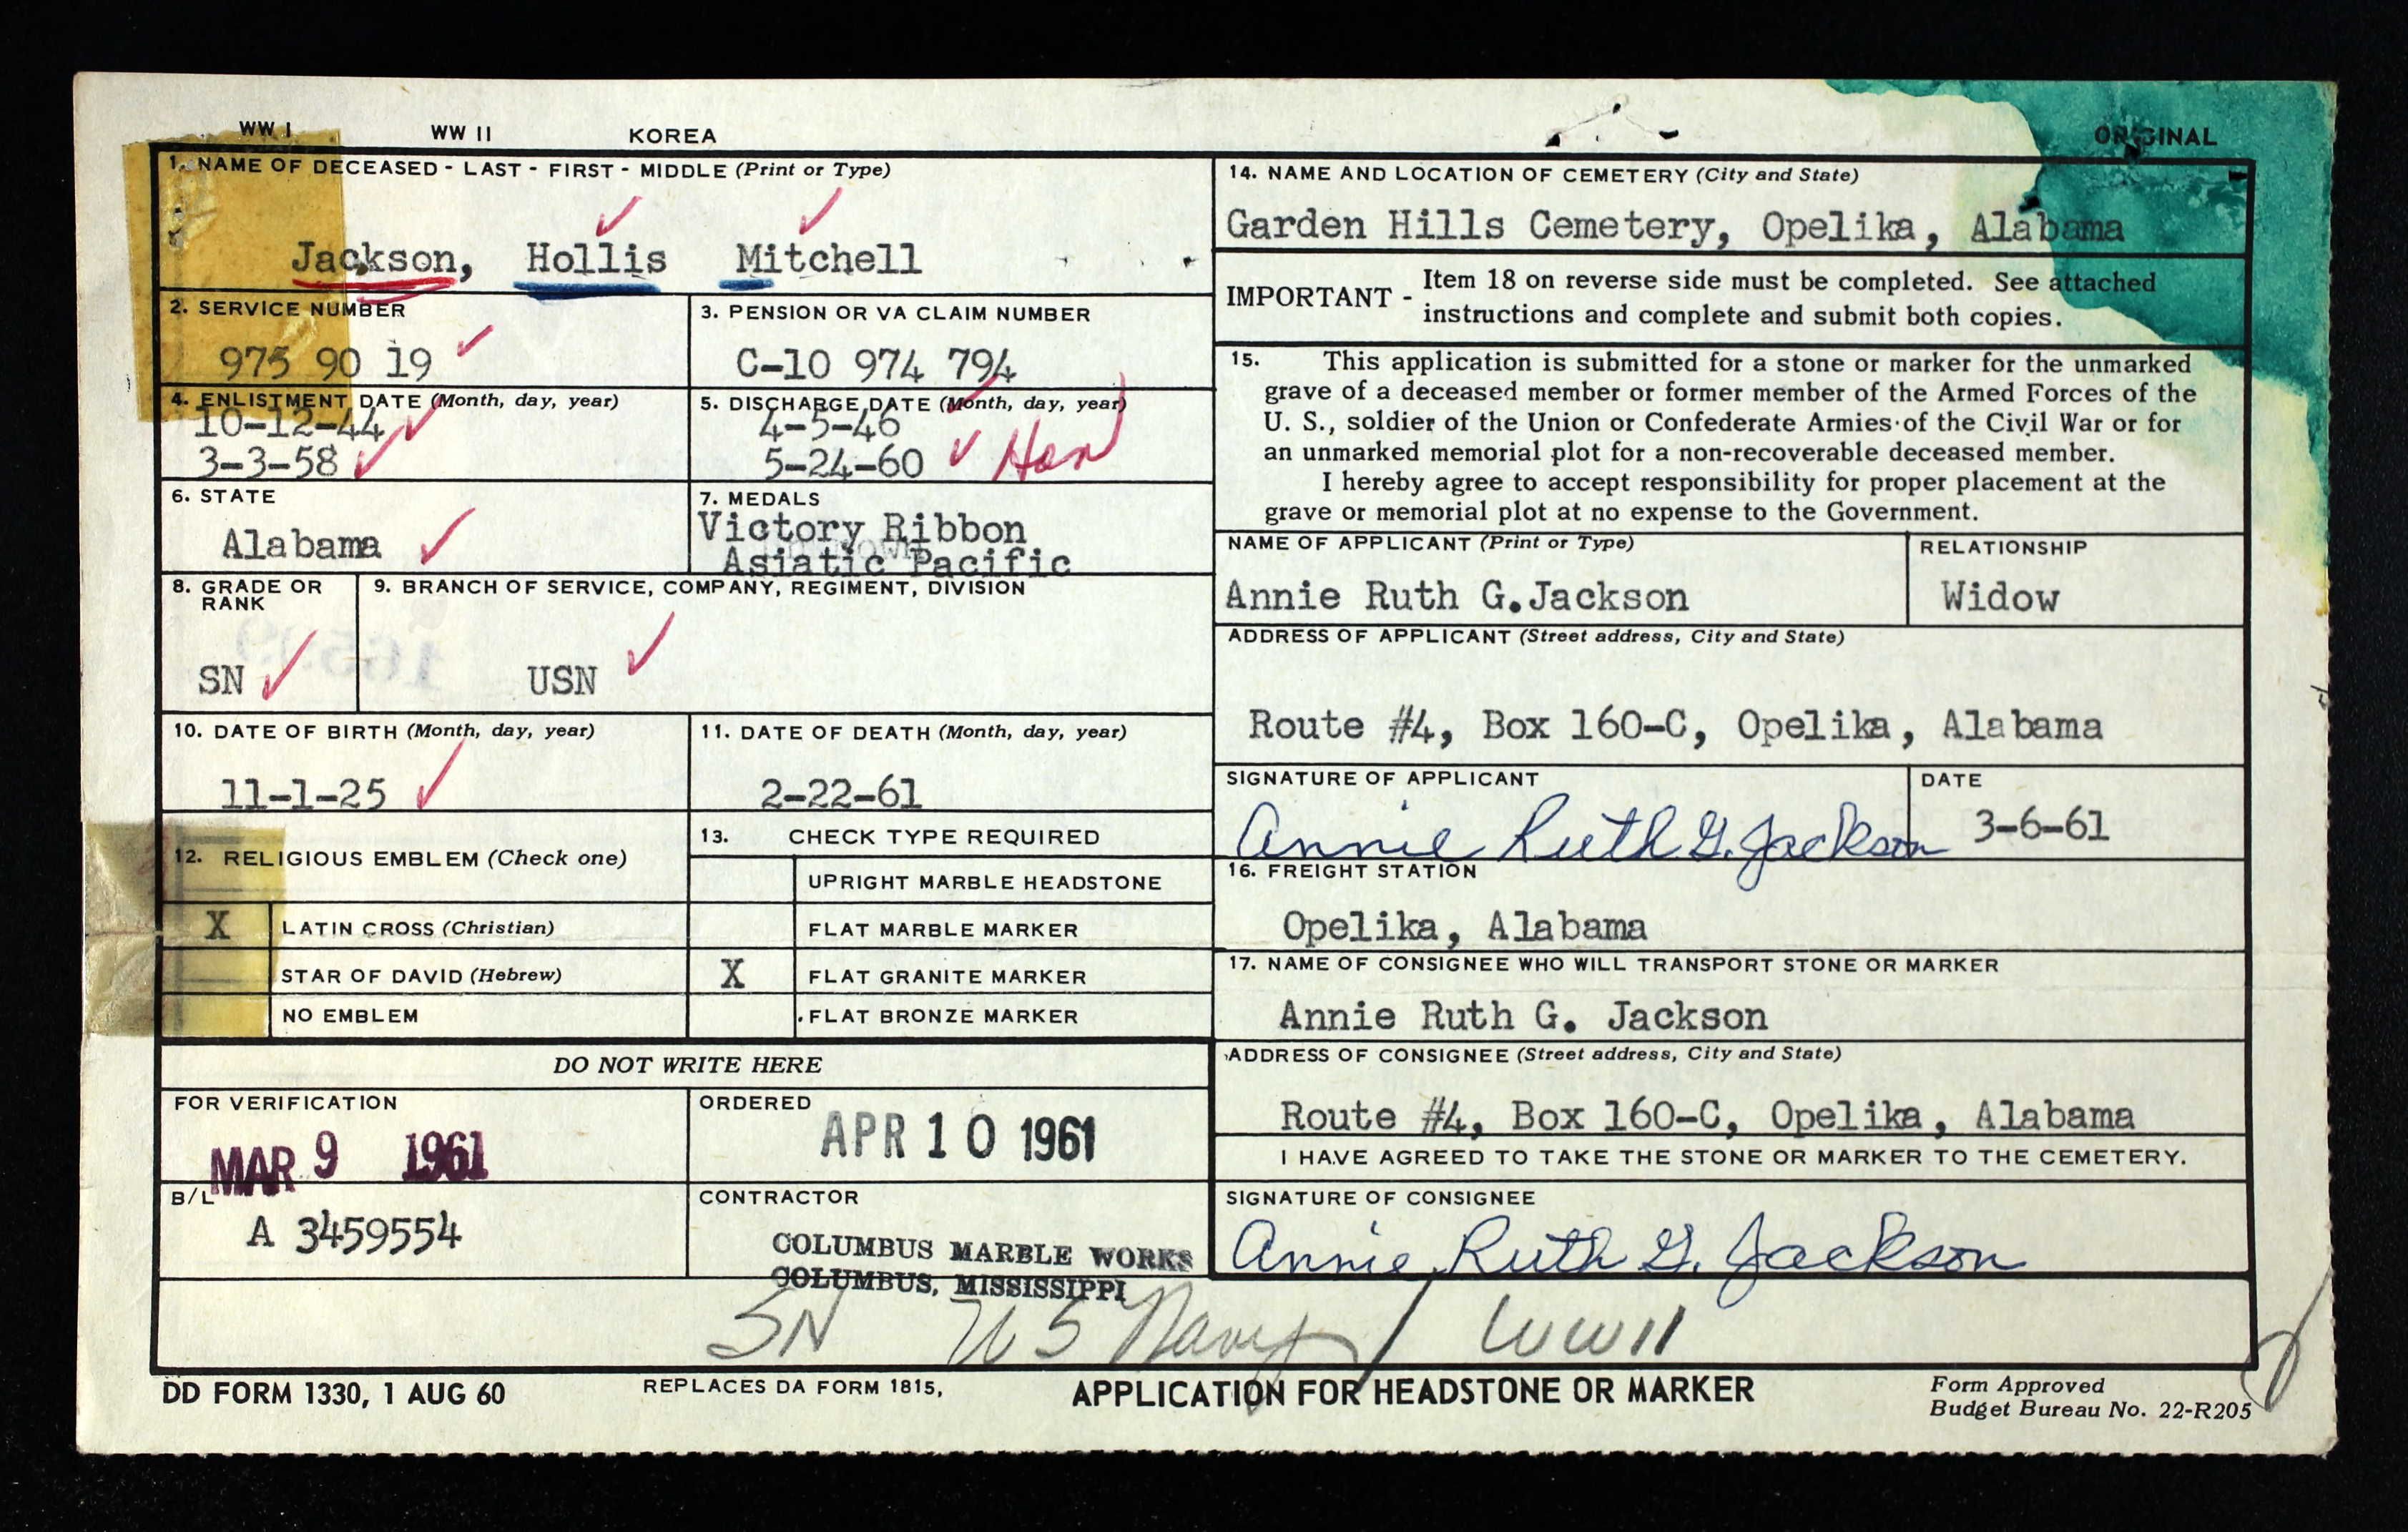 WW I WW II KOREA
ORIGINAL
1. NAME OF DECEASED - LAST - FIRST - MIDDLE (Print or Type)
Jackson, Hollis Mitchell
2. SERVICE NUMBER
975 90 19
3. PENSION OR VA CLAIM NUMBER
C-10 974 794
4. ENLISTMENT DATE (Month, day, year)
10-12-44
3-3-58
5. DISCHARGE DATE (Month, day, year)
4-5-46
5-24-60 Hon
6. STATE
Alabama
7. MEDALS
Victory Ribbon
Asiatic Pacific
8. GRADE OR
RANK
SN
9. BRANCH OF SERVICE, COMPANY, REGIMENT, DIVISION
USN
10. DATE OF BIRTH (Month, day, year)
11-1-25
11. DATE OF DEATH (Month, day, year)
2-22-61
12. RELIGIOUS EMBLEM (Check one)
X LATIN CROSS (Christian)
STAR OF DAVID (Hebrew)
NO EMBLEM
13. CHECK TYPE REQUIRED
UPRIGHT MARBLE HEADSTONE
FLAT MARBLE MARKER
X FLAT GRANITE MARKER
FLAT BRONZE MARKER
DO NOT WRITE HERE
FOR VERIFICATION
MAR 9 1961
ORDERED
APR 10 1961
B/L
A 3459554
CONTRACTOR
COLUMBUS MARBLE WORKS
COLUMBUS, MISSISSIPPI
14. NAME AND LOCATION OF CEMETERY (City and State)
Garden Hills Cemetery, Opelika, Alabama
IMPORTANT - Item 18 on reverse side must be completed. See attached
instructions and complete and submit both copies.
15. This application is submitted for a stone or marker for the unmarked
grave of a deceased member or former member of the Armed Forces of the
U. S., soldier of the Union or Confederate Armies of the Civil War or for
an unmarked memorial plot for a non-recoverable deceased member.
I hereby agree to accept responsibility for proper placement at the
grave or memorial plot at no expense to the Government.
NAME OF APPLICANT (Print or Type)
Annie Ruth G.Jackson
RELATIONSHIP
Widow
ADDRESS OF APPLICANT (Street address, City and State)
Route #4, Box 160-C, Opelika, Alabama
SIGNATURE OF APPLICANT
Annie Ruth G. Jackson
DATE
3-6-61
16. FREIGHT STATION
Opelika, Alabama
17. NAME OF CONSIGNEE WHO WILL TRANSPORT STONE OR MARKER
Annie Ruth G. Jackson
ADDRESS OF CONSIGNEE (Street address, City and State)
Route #4, Box 160-C, Opelika, Alabama
I HAVE AGREED TO TAKE THE STONE OR MARKER TO THE CEMETERY.
SIGNATURE OF CONSIGNEE
Annie Ruth G. Jackson
SN US Navy / WWII
DD FORM 1330, 1 AUG 60
REPLACES DA FORM 1815,
APPLICATION FOR HEADSTONE OR MARKER
Form Approved
Budget Bureau No. 22-R205